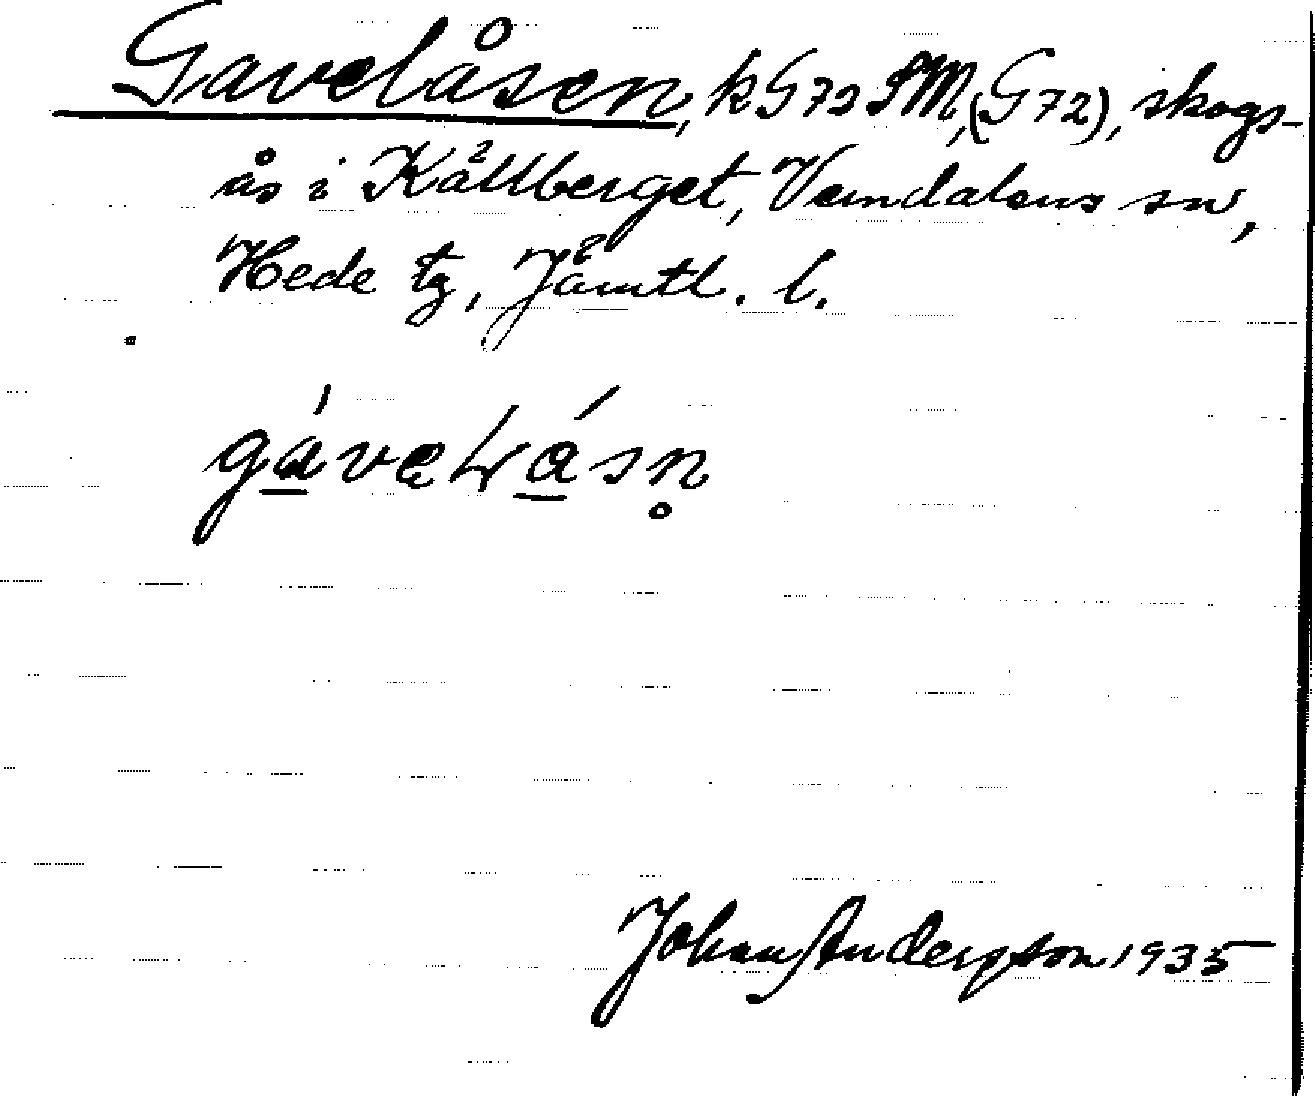 Gavelåsen, k G72 SM, (G72), skogs-
ås i Källberget, Vemdalens sn,
Hede tg, Jämtl. l.
Johan Andersson 1935